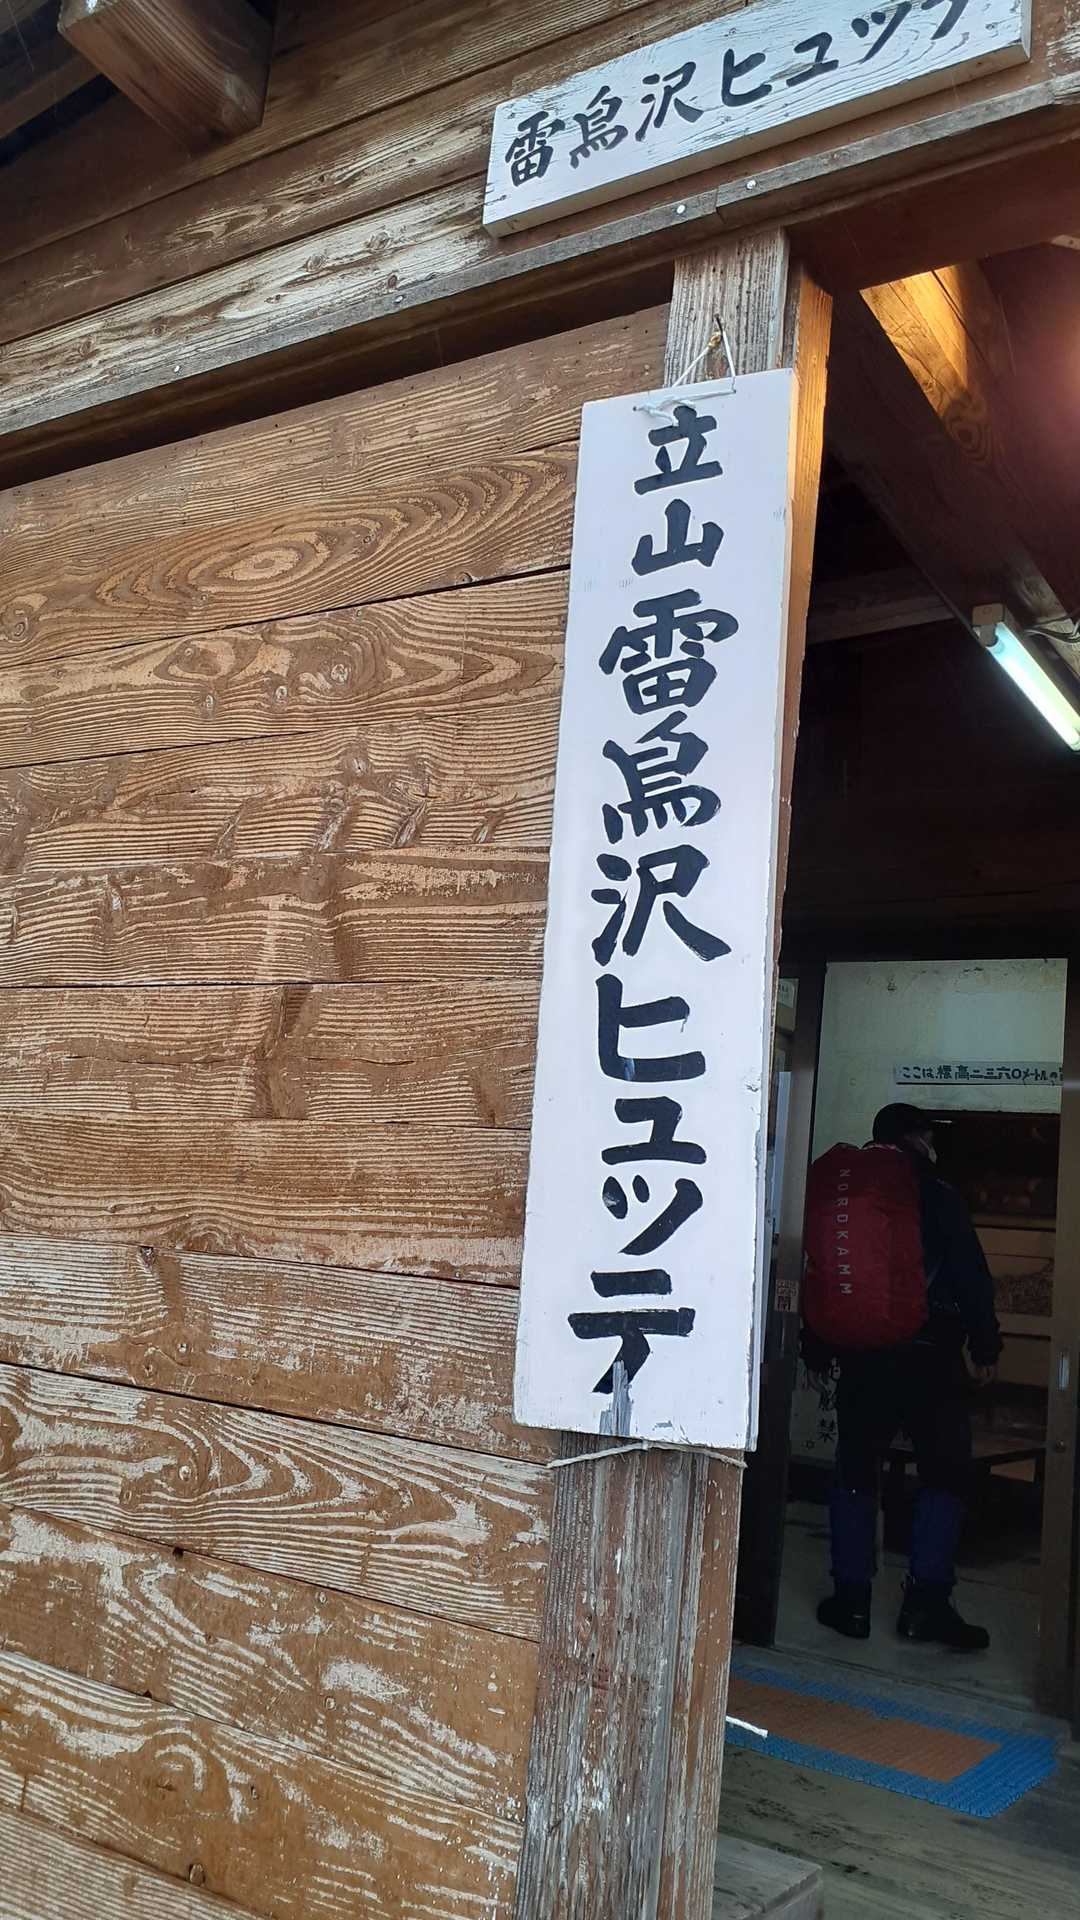 雷鳥沢ヒュッテ
立山雷鳥沢ヒュッテ
ここは標高二三六〇メートルの
NORDKAMM